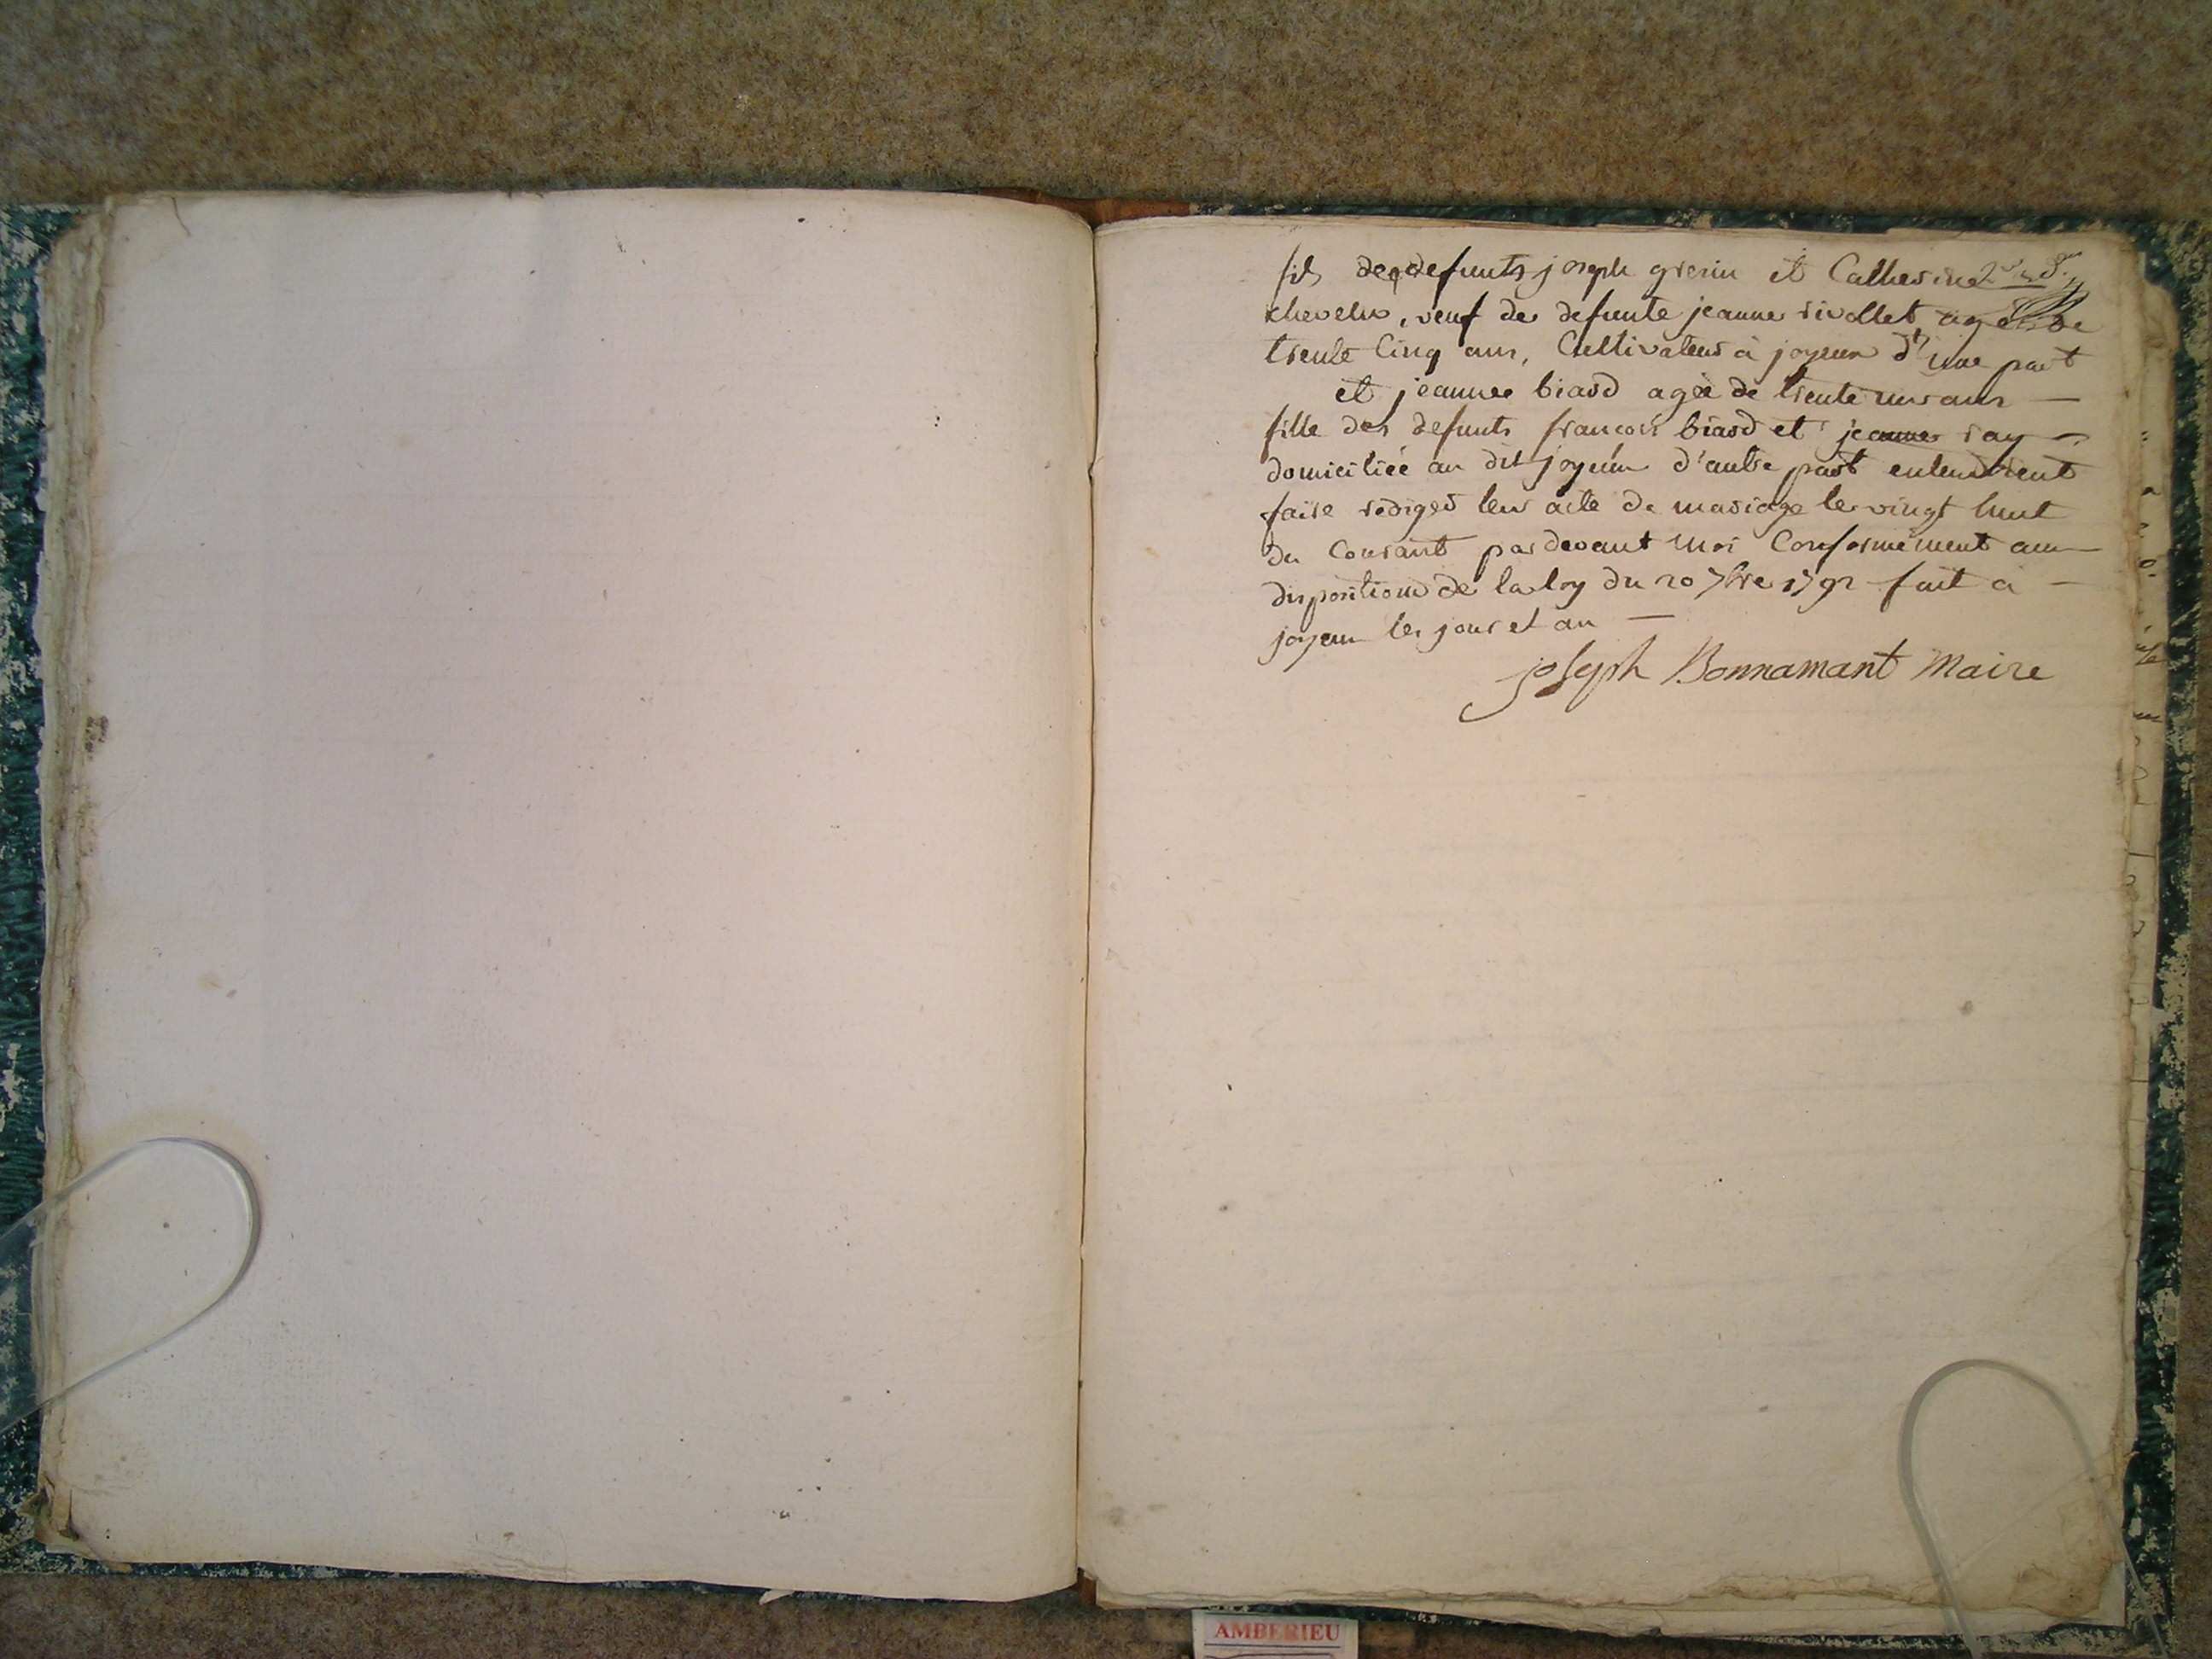 fils des defunts joseph grenin et Catherine
chevelu, veuf de defunte jeanne rivollet agé de
trente Cinq ans, Cultivateur à joyeux d'une part
et jeanne biard agée de trente un ans —
fille des defunts francois biard et jeanne ray —
domiciliée au dit joyeux d'autre part entendent
faire rediger leur acte de mariage le vingt huit
du Courant pardevant moi Conformement aux —
dispositions de la loy du 20 7bre 1792 fait à —
joyeux les jour et an —
joseph Bonnamant Maire
AMBERIEU